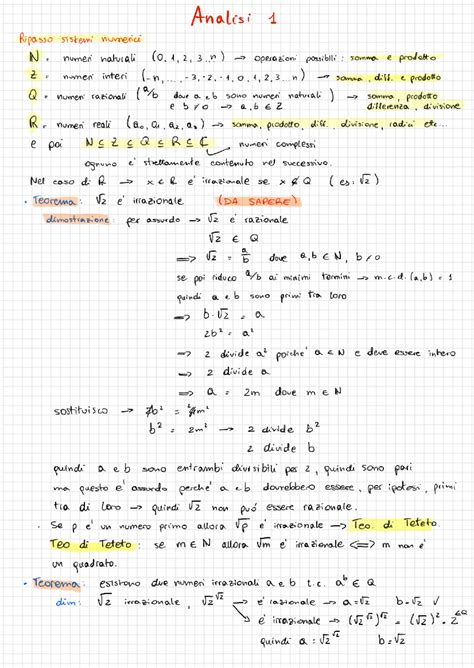 Analisi 1
Ripasso sistemi numerici
N = numeri naturali (0, 1, 2, 3..n) → operazioni possibili: somma e prodotto
Z = numeri interi (-n, ... -3, -2, -1, 0, 1, 2, 3.. n) → somma, diff. e prodotto
Q = numeri razionali (a/b dove a e b sono numeri naturali) → somma, prodotto
e b ≠ 0 → a, b ∈ Z differenza, divisione
R = numeri reali (a₀, a₁, a₂, a₃) → somma, prodotto, diff., divisione, radici etc...
e poi N ⊆ Z ⊆ Q ⊆ R ⊆ C numeri complessi
ognuno e' strettamente contenuto nel successivo.
Nel caso di R → x ∈ R e' irrazionale se x ∉ Q (es: √2)
• Teorema: √2 e' irrazionale (DA SAPERE)
dimostrazione: per assurdo → √2 e' razionale
√2 ∈ Q
=> √2 = a/b dove a, b ∈ N, b ≠ 0
se poi riduco a/b ai minimi termini → m.c.d. (a, b) = 1
quindi a e b sono primi tra loro
=> b·√2 = a
2b² = a²
=> 2 divide a² poiche' a ∈ N e deve essere intero
=> 2 divide a
=> a = 2m dove m ∈ N
sostituisco → 2b² = 4m²
b² = 2m² → 2 divide b²
2 divide b
quindi a e b sono entrambi divisibili per 2, quindi sono pari
ma questo e' assurdo perche' a e b dovrebbero essere, per ipotesi, primi
tra di loro → quindi √2 non può essere razionale.
• Se p e' un numero primo allora √p e' irrazionale → Teo. di Teteto.
Teo di Teteto: se m ∈ N allora √m e' irrazionale <=> m non e'
un quadrato.
• Teorema: esistono due numeri irrazionali a e b t.c. aᵇ ∈ Q
dim: √2 irrazionale, √2^√2 → e' razionale → a=√2 b=√2 ✓
→ e' irrazionale → (√2^√2)^√2 = (√2)² = 2 ∈Q
quindi a = √2^√2 b = √2